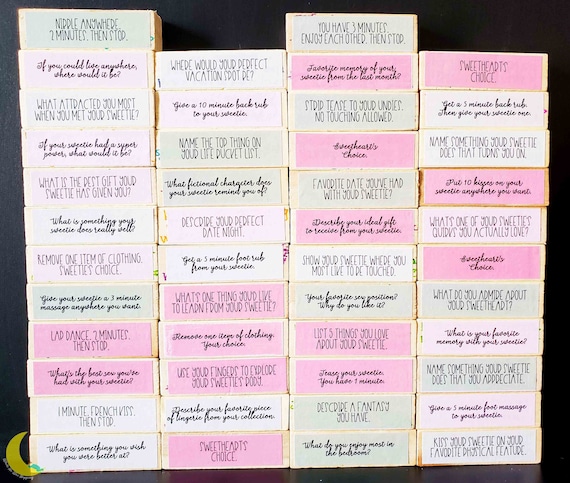 NIBBLE ANYWHERE.
2 MINUTES. THEN STOP.
If you could live anywhere,
where would it be?
WHAT ATTRACTED YOU MOST
WHEN YOU MET YOUR SWEETIE?
If your sweetie had a super
power, what would it be?
WHAT IS THE BEST GIFT YOUR
SWEETIE HAS GIVEN YOU?
What is something your
sweetie does really well?
REMOVE ONE ITEM OF CLOTHING.
SWEETIE'S CHOICE.
Give your sweetie a 3 minute
massage anywhere you want.
LAP DANCE. 2 MINUTES.
THEN STOP.
What's the best sex you've
had with your sweetie?
1 MINUTE. FRENCH KISS.
THEN STOP.
What is something you wish
you were better at?
WHERE WOULD YOUR PERFECT
VACATION SPOT BE?
Give a 10 minute back rub
to your sweetie.
NAME THE TOP THING ON
YOUR LIFE BUCKET LIST.
What fictional character does
your sweetie remind you of?
DESCRIBE YOUR PERFECT
DATE NIGHT.
Get a 5 minute foot rub
from your sweetie.
WHAT'S ONE THING YOU'D LIKE
TO LEARN FROM YOUR SWEETIE?
Remove one item of clothing.
Your choice.
USE YOUR FINGERS TO EXPLORE
YOUR SWEETIES BODY.
Describe your favorite piece
of lingerie from your collection.
SWEETHEART'S
CHOICE.
YOU HAVE 3 MINUTES.
ENJOY EACH OTHER. THEN STOP.
Favorite memory of your
sweetie from the last month?
STRIP TEASE TO YOUR UNDIES.
NO TOUCHING ALLOWED.
Sweetheart's
Choice.
FAVORITE DATE YOU'VE HAD
WITH YOUR SWEETIE?
Describe your ideal gift
to receive from your sweetie.
SHOW YOUR SWEETIE WHERE YOU
MOST LIKE TO BE TOUCHED.
Your favorite sex position?
Why do you like it?
LIST 5 THINGS YOU LOVE
ABOUT YOUR SWEETIE.
Tease your sweetie.
You have 1 minute.
DESCRIBE A FANTASY
YOU HAVE.
What do you enjoy most in
the bedroom?
SWEETHEART'S
CHOICE.
Get a 5 minute back rub.
Then give your sweetie one.
NAME SOMETHING YOUR SWEETIE
DOES THAT TURNS YOU ON.
Put 10 kisses on your
sweetie anywhere you want.
WHAT'S ONE OF YOUR SWEETIES
QUIRKS YOU ACTUALLY LOVE?
Sweetheart's
Choice.
WHAT DO YOU ADMIRE ABOUT
YOUR SWEETHEART?
What is your favorite
memory with your sweetie?
NAME SOMETHING YOUR SWEETIE
DOES THAT YOU APPRECIATE.
Give a 5 minute foot massage
to your sweetie.
KISS YOUR SWEETIE ON YOUR
FAVORITE PHYSICAL FEATURE.